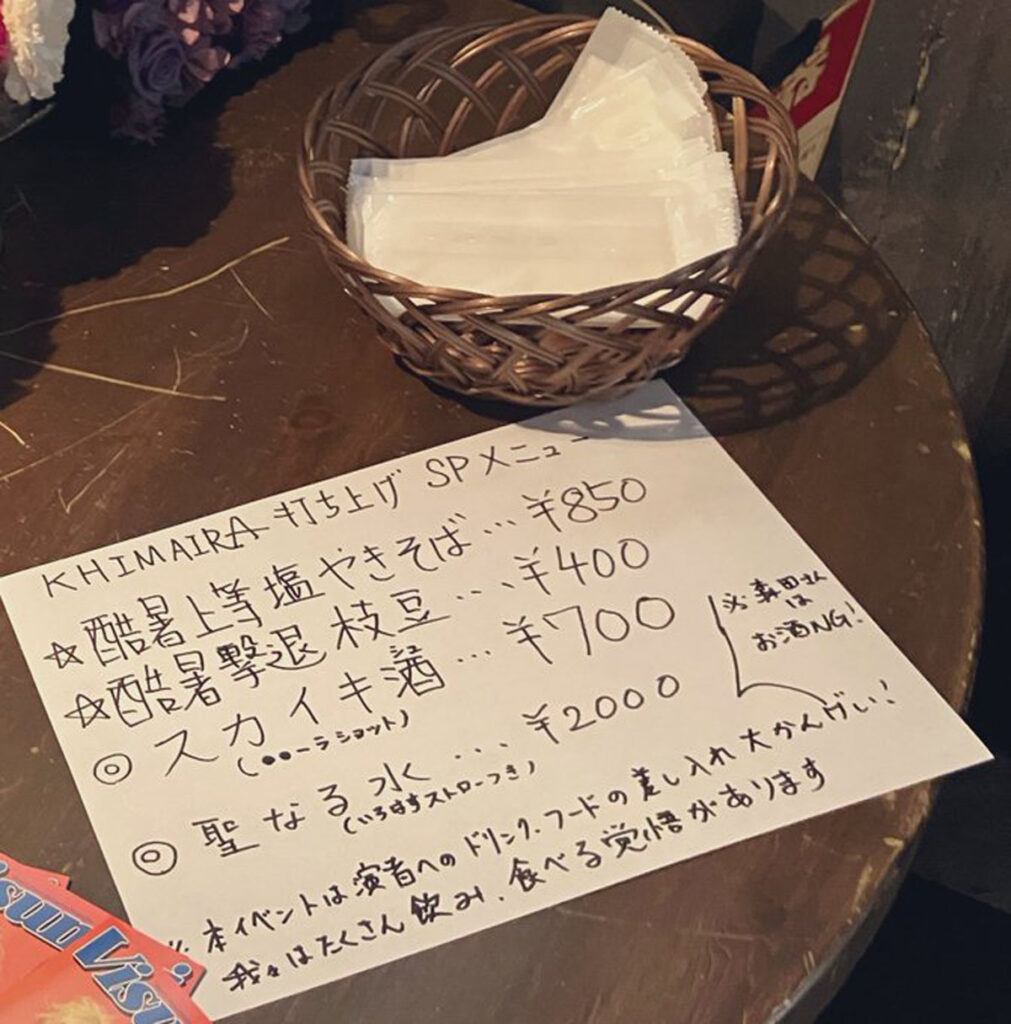 KHIMAIRA 打ち上げ SPメニュー
☆酷暑上等塩やきそば…¥850
☆酷暑撃退枝豆…¥400
◎スカイキ酒…¥700
ジュ
(●●ーラショット)
◎聖なる水…¥2000
(いろはすストローつき)
※森田さん
は
お酒NG!
※本イベントは演者へのドリンク、フードの差し入れ大かんげい!
我々はたくさん飲み、食べる覚悟があります